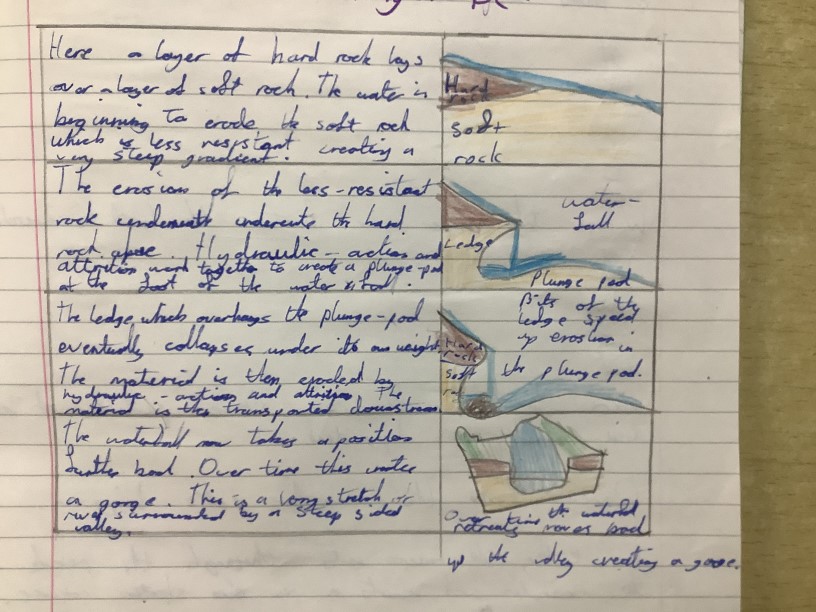 Here a layer of hard rock lays
over a layer of soft rock. The water is
beginning to erode the soft rock
which is less resistant creating a
very steep gradient.
Hard
rock
soft
rock
The erosion of the less-resistant
rock underneath undercuts the hard
rock above. Hydraulic-action and
attrition work together to create a plunge-pool
at the foot of the water
water-
fall
Ledge
Plunge pool
The ledge which overhangs the plunge-pool
eventually collapses under its own weight
The material is then eroded by
hydraulic-action and attrition The
material is then transported downstream
Hard
rock
Soft
Bits of the
ledge speed
up erosion in
the plunge pool.
The waterfall now takes a position
further back. Over time this
a gorge. This is a long stretch of
river surrounded by a steep sided
valley.
Over time the waterfall
retreats moves back
up the valley creating a gorge.